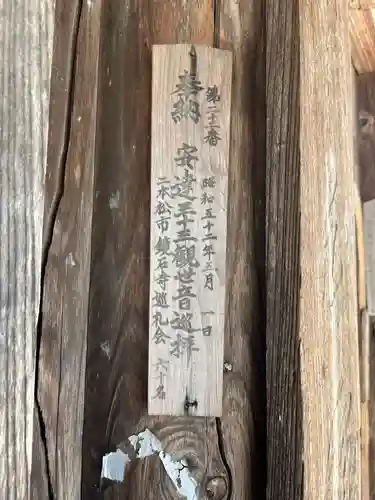 第二十二番
昭和五十二年三月一日
奉納 安達三十三觀世音巡拝
二本松市 鏡石寺巡礼会 六十名